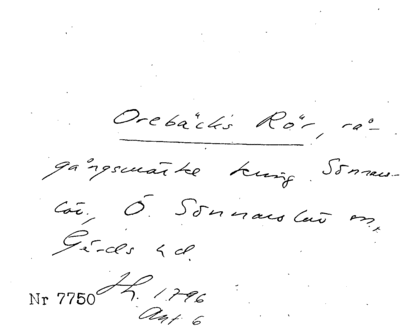 Orebäcks Rör, rå-
gångsmärke kring Sönnars-
löv, Ö. Sönnarslöv sn,
Gärds hd.
Nr 7750 Lh. 1796
Akt 6